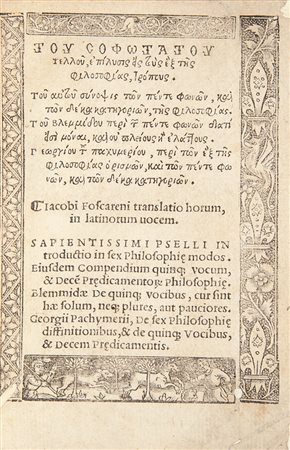 ΤΟΥ ΣΟΦΩΤΑΤΟΥ
Ψελλοῦ, ἐπίλυσις εἰς τοὺς ἓξ τῆς
φιλοσοφίας τρόπους.
Τοῦ αὐτοῦ σύνοψις τῶν πέντε φωνῶν, καὶ
τῶν δέκα κατηγοριῶν, τῆς φιλοσοφίας.
Τοῦ Βλεμμίδου περὶ τ πέντε φωνῶν διατί
εἰσι μόναι, καὶ οὐ πλείους ἢ ἐλάττους.
Γεωργίου τ παχυμερίου, περὶ τῶν ἓξ τῆς
φιλοσοφίας ὁρισμῶν, καὶ τῶν πέντε φω
νῶν, καὶ τῶν δέκα κατηγοριῶν.
Iacobi Foscareni translatio horum,
in latinorum uocem.
SAPIENTISSIMI PSELLI IN
troductio in sex Philosophię modos.
Eiusdem Compendium quinq; vocum,
& Decē Prędicamentoꝝ Philosophię.
Blemmidæ De quinq; vocibus, cur sint
hæ solum, neq; plures, aut pauciores.
Georgii Pachymerii, De sex Philosophię
diffinitionibus, & de quinq; Vocibus,
& Decem Prędicamentis.